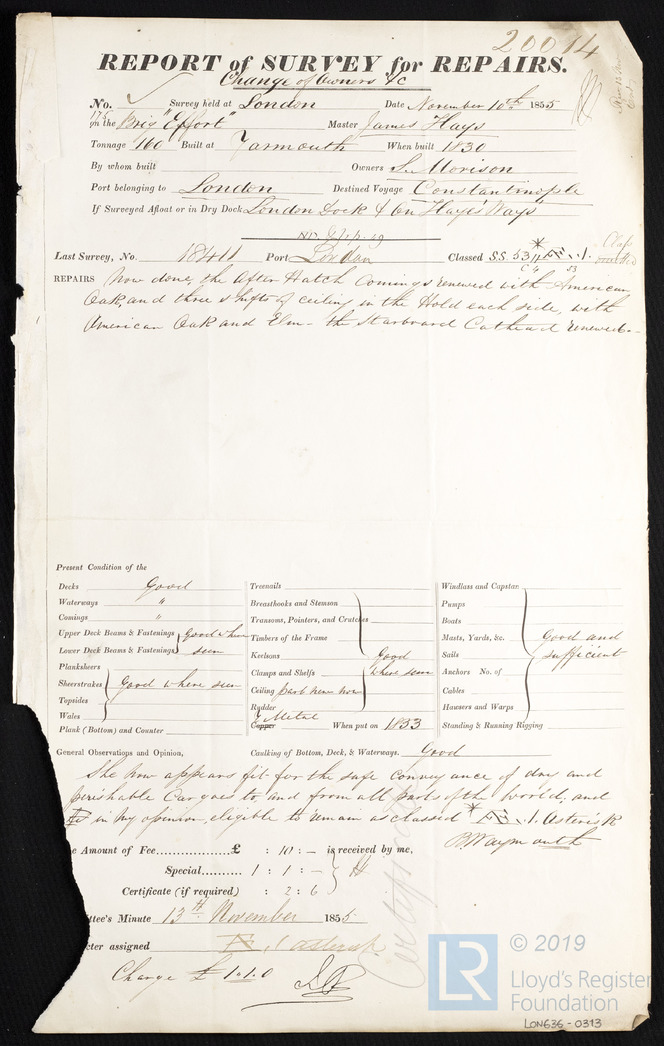 20014
REPORT of SURVEY for REPAIRS.
Change of Owners &c
No. Survey held at London Date November 10th 1855
on the Brig "Effort" Master James Hays
Tonnage 160 Built at Yarmouth When built 1830
By whom built Owners S. Morison
Port belonging to London Destined Voyage Constantinople
If Surveyed Afloat or in Dry Dock London Dock & on Hays' Ways
Last Survey, No. 18411 Port London Classed S.S. 53
REPAIRS Now done, the After Hatch Comings renewed with American
Oak, and three shifts of ceiling in the Hold each side, with
American Oak and Elm - the Starboard Cathead renewed -
Present Condition of the
Decks Good
Waterways "
Comings "
Upper Deck Beams & Fastenings Good where
Lower Deck Beams & Fastenings seen
Planksheers
Sheerstrakes Good where seen
Topsides
Wales
Plank (Bottom) and Counter
Treenails
Breasthooks and Stemson
Transoms, Pointers, and Crutches
Timbers of the Frame
Keelsons Good
Clamps and Shelfs where seen
Ceiling part new now
Rudder
Copper Y Metal When put on 1853
Windlass and Capstan
Pumps
Boats
Masts, Yards, &c. Good and
Sails sufficient
Anchors No. of
Cables
Hawsers and Warps
Standing & Running Rigging
General Observations and Opinion, Caulking of Bottom, Deck, & Waterways. Good
She now appears fit for the safe conveyance of dry and
perishable Cargoes to, and from all parts of the World, and
is in my opinion, eligible to remain as classed * Æ. 1. Asterisk
B Waymouth
e Amount of Fee £ : 10 : - is received by me,
Special 1 : 1 : -
Certificate (if required) : 2 : 6
ttee's Minute 13th November 1855
cter assigned Æ. 1 asterisk
Charge £ 1.1.0
© 2019
LR
Lloyd's Register
Foundation
LON636-0313